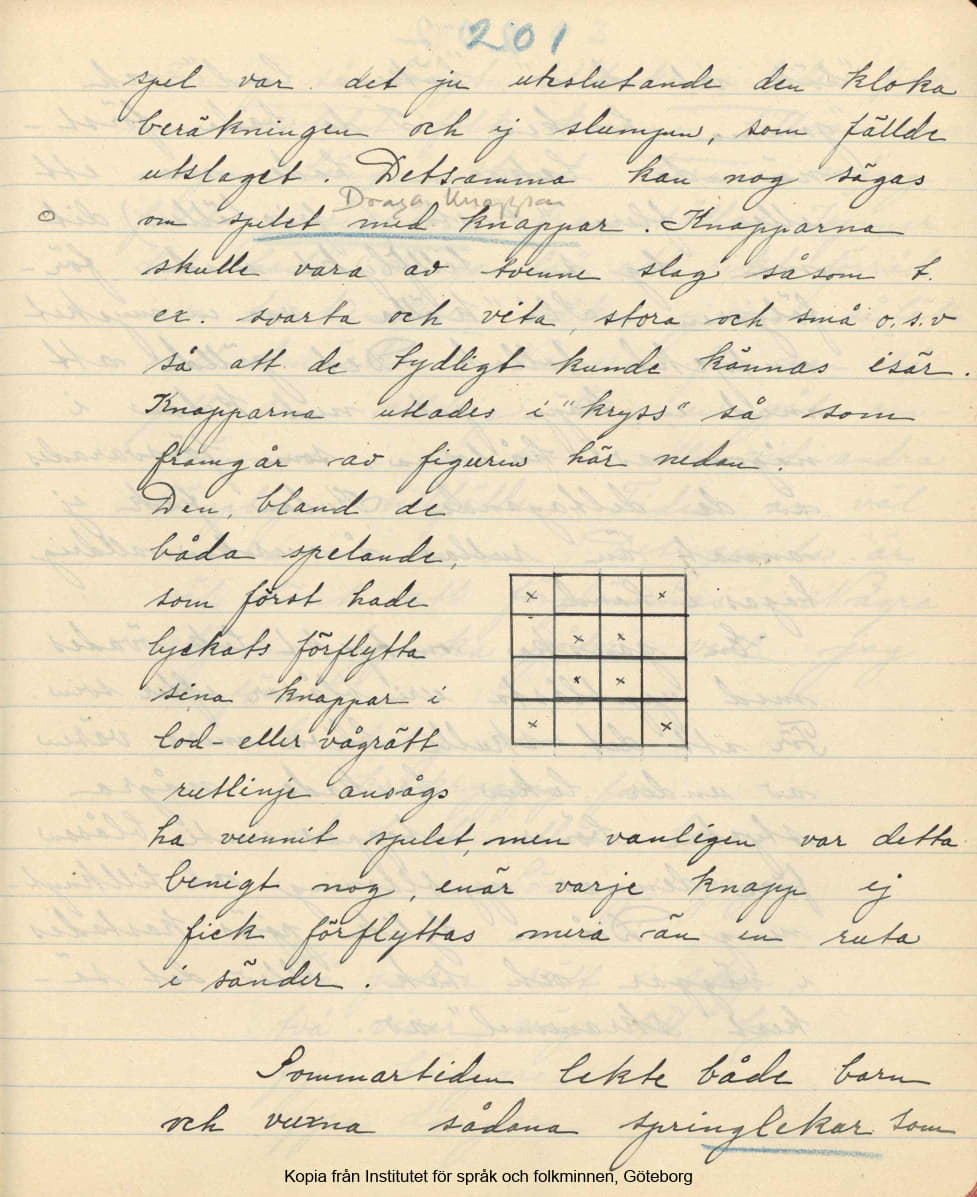 201
spel var det ju uteslutande den kloka
beräkningen och ej slumpen, som fällde
utslaget. Detsamma kan nog sägas
Draga knappar
om spelet med knappar. Knapparna
skulle vara av tvenne slag såsom t.
ex. svarta och vita, stora och små o.s.v
så att de tydligt kunde kännas isär.
Knapparna utlades i "kryss" så som
framgår av figuren här nedan.
Den, bland de
båda spelande,
som först hade
lyckats förflytta
sina knappar i
lod- eller vågrätt
rutlinje ansågs
ha vunnit spelet, men vanligen var detta
benigt nog, enär varje knapp ej
fick förflyttas mera än en ruta
i sänder.
Sommartiden lekte både barn
och vuxna sådana springlekar som
Kopia från Institutet för språk och folkminnen, Göteborg